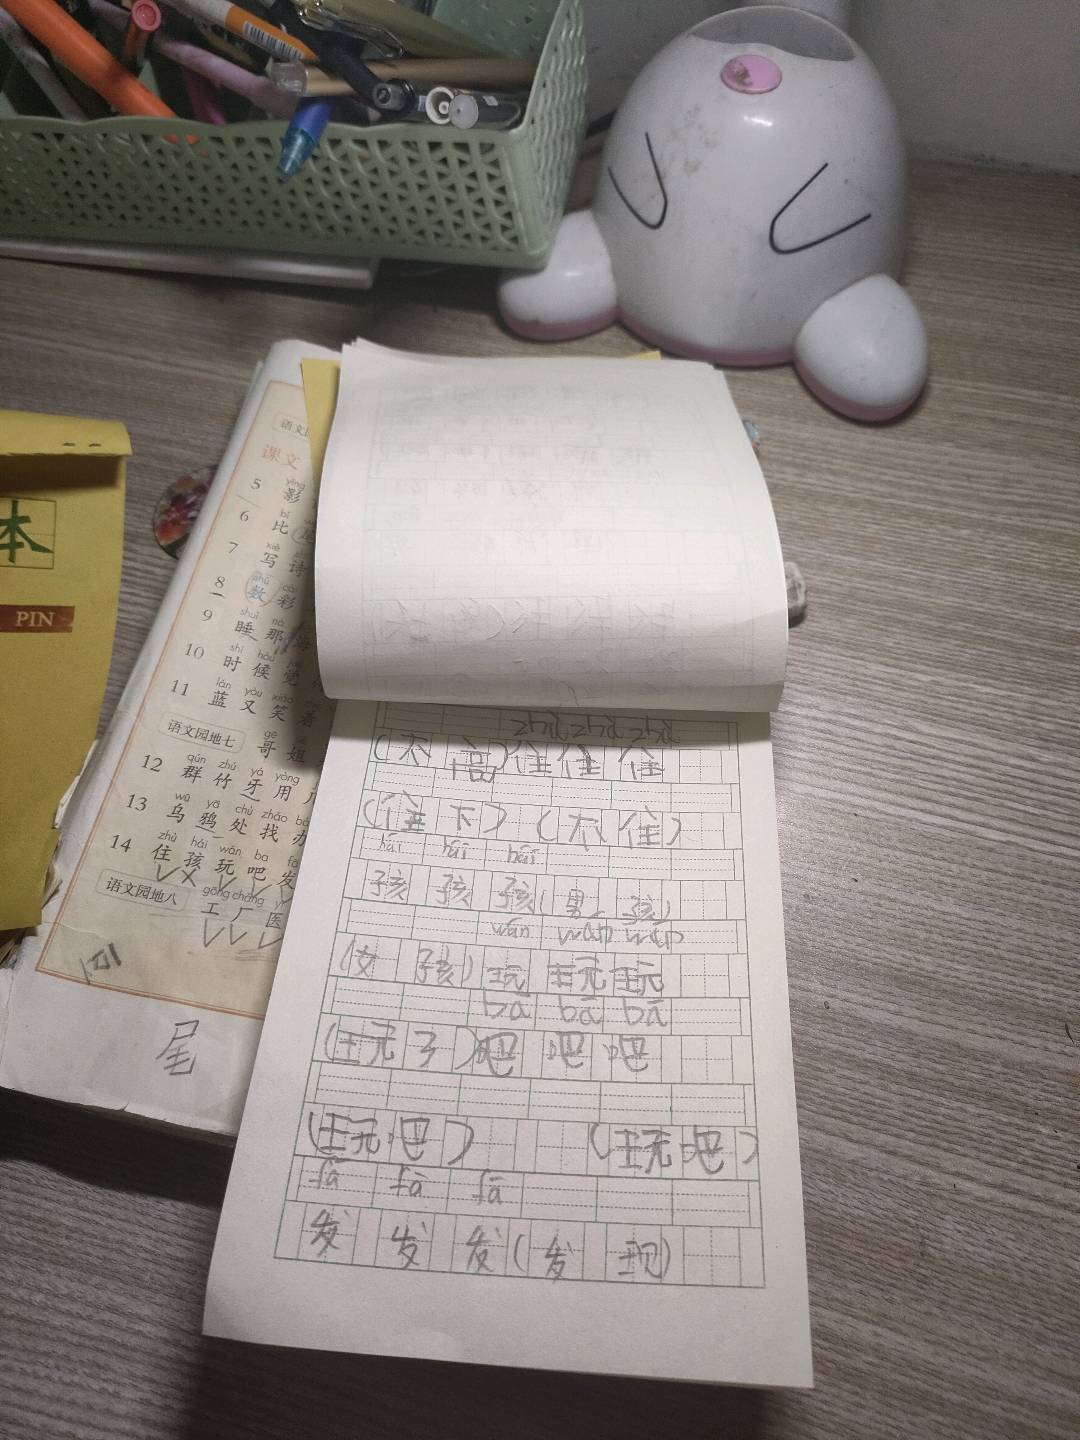 本
PIN
课文
5 yǐng 影
6 bǐ 比
7 xiě 写 诗
8 shù 数 cǎi 彩
9 shuì 睡 nà 那
10 shí 时 hòu 候 觉
11 lán 蓝 yòu 又 xiào 笑 着
语文园地七
gē 哥 姐
12 qún 群 zhú 竹 yá 牙 yòng 用
13 wū 乌 yā 鸦 chǔ 处 zhǎo 找 办
14 zhù 住 hái 孩 wán 玩 ba 吧 fā 发
语文园地八
gōng 工 chǎng 厂 医
尾
zhù zhù zhù
住 住 住
(住 下) (不 住)
hái hái hái
孩 孩 孩 (男 孩)
wán wán wán
(女 孩) 玩 玩 玩
bā bā bā
(玩 了) 吧 吧 吧
(玩 吧) (玩 吧)
fā fā fā
发 发 发 (发 现)